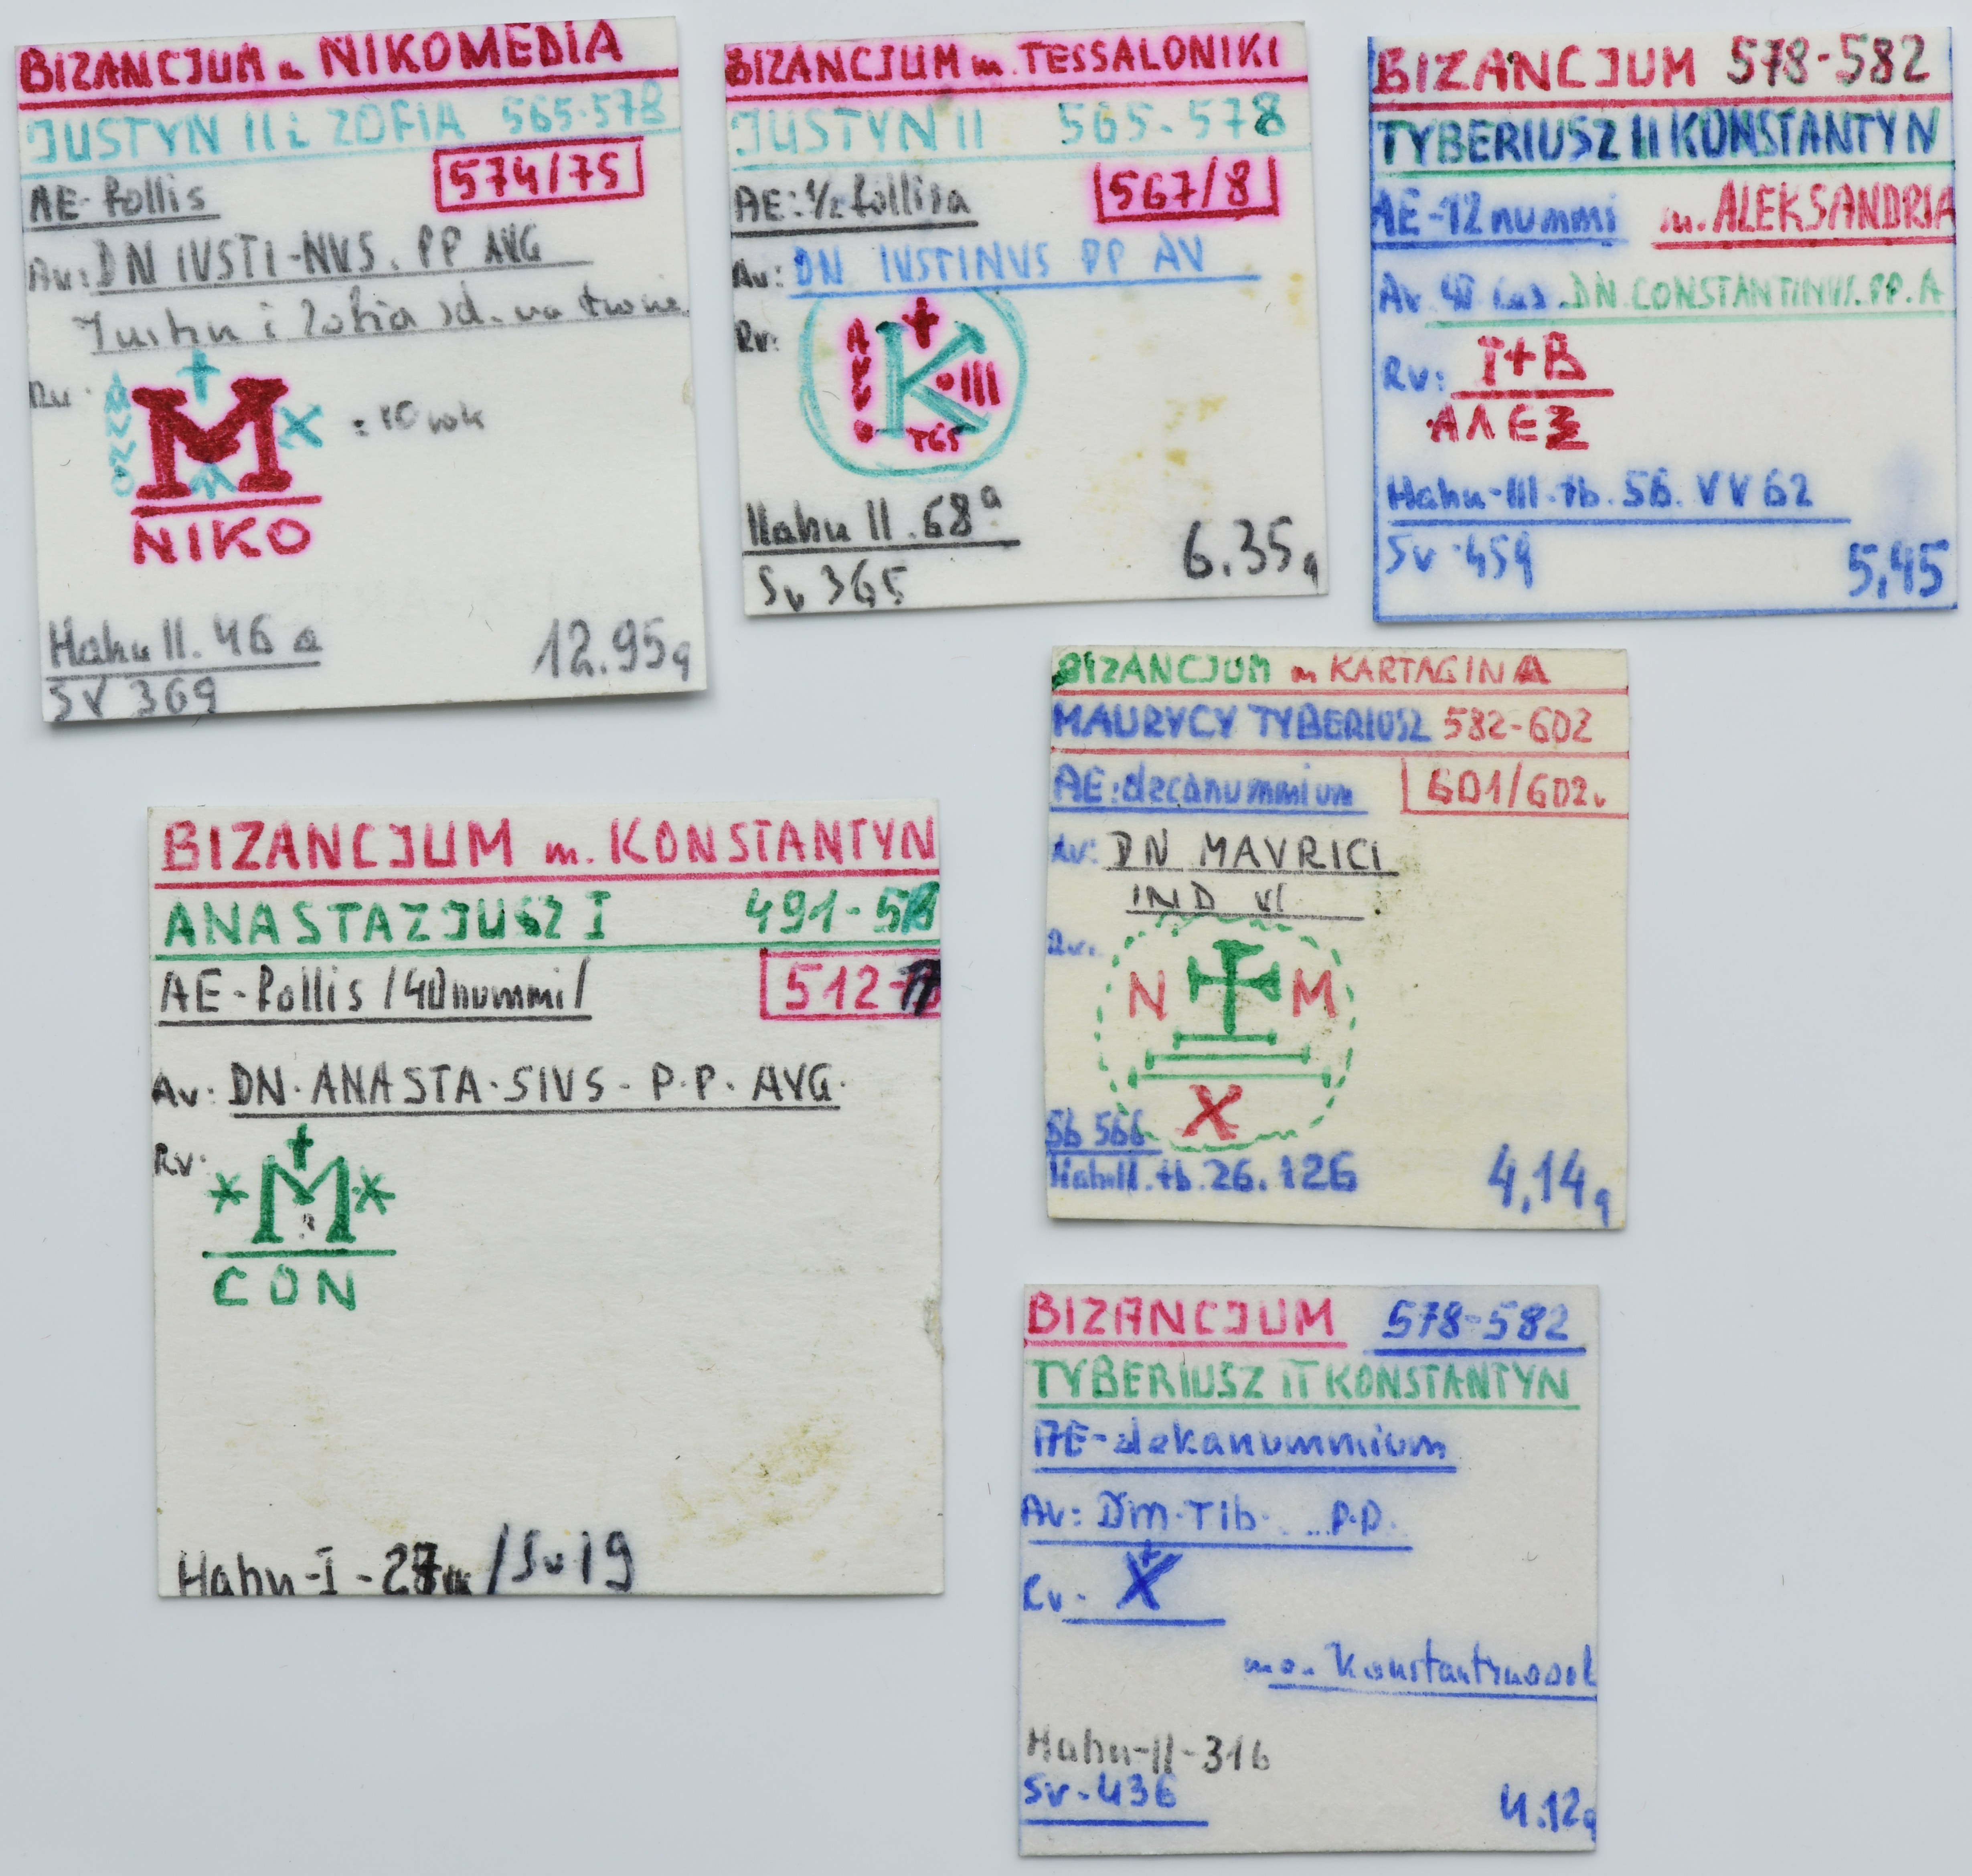 BIZANCJUM m NIKOMEDIA
JUSTYN II i ZOFIA 565-578
AE-follis 574/75
Av: DN IVSTI-NVS. PP AVG
Justyn i Zofia sd. na tronie
Rv.
ANNO M X = 10 rok
NIKO
Hahn II. 46 a
SV 369
12.95g
BIZANCJUM m. TESSALONIKI
JUSTYN II 565-578
AE: 1/2 follisa 567/8
Av: DN IVSTINVS PP AV
Rv:
K III
TES
Hahn II. 68a
Sv 365
6.35g
BIZANCJUM 578-582
TYBERIUSZ II KONSTANTYN
AE-12 nummi m. ALEKSANDRIA
Av. DN.CONSTANTINVS.PP.A
Rv: I+B
ΑΛΕΞ
Hahn-III-tb.56. VV62
Sv-459
5,45
BIZANCJUM m KARTAGINA
MAURYCY TYBERIUSZ 582-602
AE: decanummium 601/602.
Av: DN MAVRICI
IND VI
Rv.
N M
X
Sb 566
Hahn II. tb. 26. 126
4,14g
BIZANCJUM m. KONSTANTYN
ANASTAZJUSZ I 491-518
AE-follis /40 nummi/ 512-17
Av: DN·ANASTA·SIVS-P·P·AVG·
Rv:
*M*
CON
Hahn-I-27 /Sv 19
BIZANCJUM 578-582
TYBERIUSZ II KONSTANTYN
AE-dekanummium
Av: Dm·Tib·...P.P.
Rv- X
men. Konstantynopol
Hahn-II-316
Sv-436
4.12g